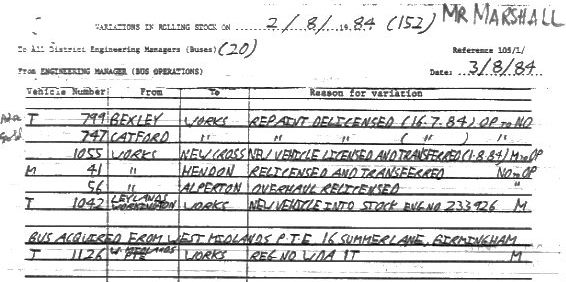 VARIATIONS IN ROLLING STOCK ON 2/8/1984 (152) MR MARSHALL
To All District Engineering Managers (Buses) (20) Reference 105/1/
From ENGINEERING MANAGER (BUS OPERATIONS) Date: 3/8/84
Vehicle Number From To Reason for variation
T 799 BEXLEY WORKS REPAINT DELICENSED (16.7.84) OP TO NO
747 CATFORD " " " ( " ) "
1055 WORKS NEW CROSS NEW VEHICLE LICENSED AND TRANSFERRED (1.8.84) M TO OP
M 41 " HENDON RELICENSED AND TRANSFERRED NO TO OP
56 " ALPERTON OVERHAUL RELICENSED "
T 1042 LEYLANDS WORKINGTON WORKS NEW VEHICLE INTO STOCK ENG NO 233926 M
BUS ACQUIRED FROM WEST MIDLANDS P.T.E. 16 SUMMER LANE, BIRMINGHAM
T 1126 W. MIDLANDS PTE WORKS REG NO WDA 1T M